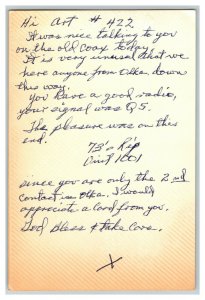 Hi Art # 422
It was nice talking to you
on the old Coax today.
It is very unusual that we
have anyone from Okla. down
this way.
You have a good radio,
your signal was Q5.
The pleasure was on this
end.
73's Rip
Unit 1001
since you are only the 2nd
contact in Okla. I would
appreciate a card from you.
God Bless & take Care.
X